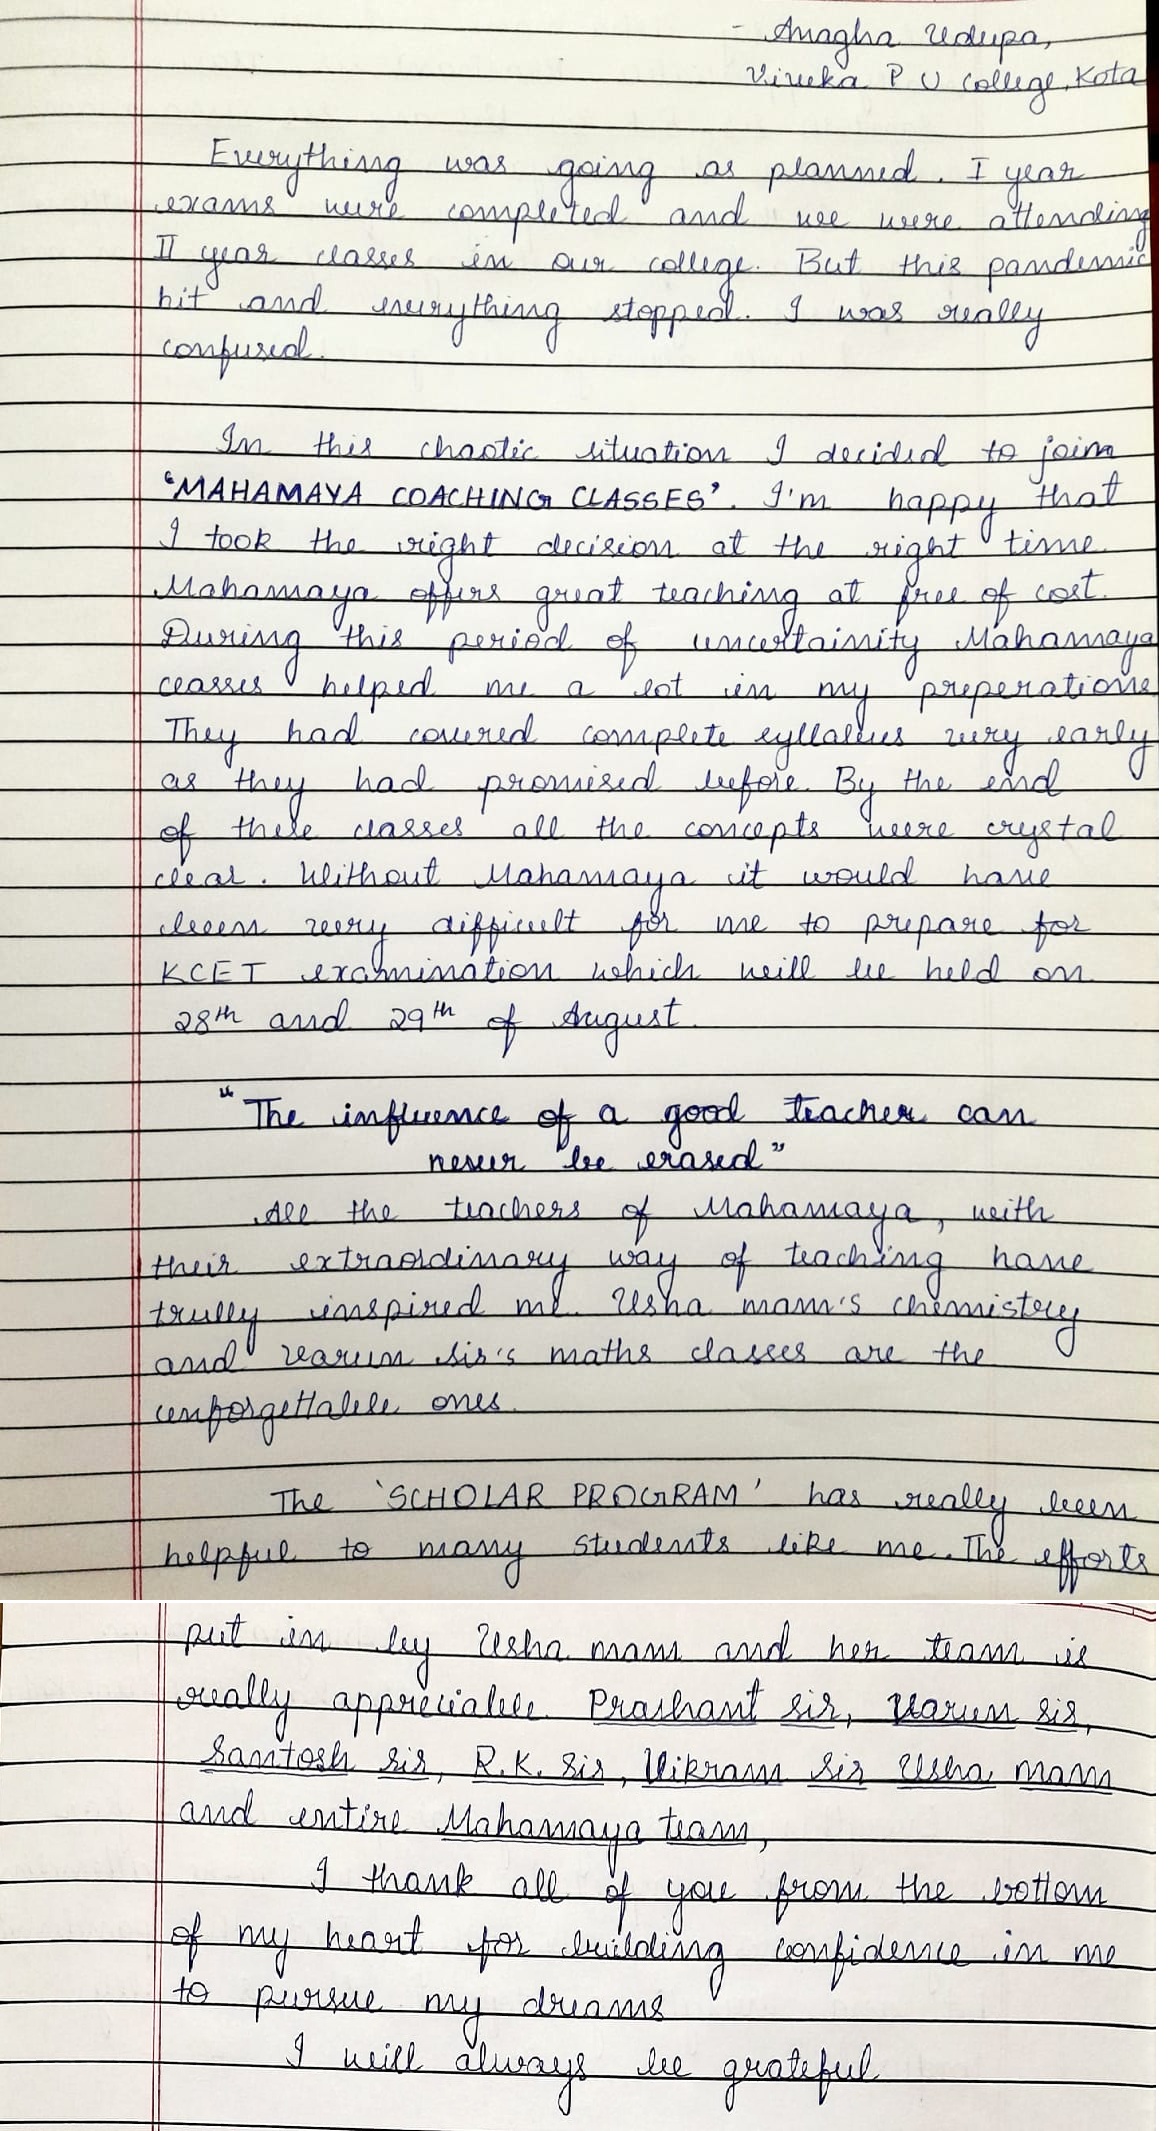 - Anagha Udupa,
Viveka P U College, Kota
Everything was going as planned. I year
exams were completed and we were attending
II year classes in our college. But this pandemic
hit and everything stopped. I was really
confused.
In this chaotic situation I decided to join
'MAHAMAYA COACHING CLASSES'. I'm happy that
I took the right decision at the right time.
Mahamaya offers great teaching at free of cost.
During this period of uncertainity Mahamaya
classes helped me a lot in my preperations
They had covered complete syllabus very early
as they had promised before. By the end
of these classes all the concepts were crystal
clear. Without Mahamaya it would have
been very difficult for me to prepare for
KCET examination which will be held on
28th and 29th of August.
"The influence of a good teacher can
never be erased"
All the teachers of Mahamaya, with
their extraordinary way of teaching have
trully inspired me. Usha mam's chemistry
and Varun sir's maths classes are the
unforgettable ones.
The 'SCHOLAR PROGRAM' has really been
helpful to many students like me. The efforts
put in by Usha mam and her team is
really appreciable. Prashant sir, Varun sir,
Santosh sir, R.K. Sir, Vikram Sir Usha mam
and entire Mahamaya team,
I thank all of you from the bottom
of my heart for building confidence in me
to pursue my dreams
I will always be grateful